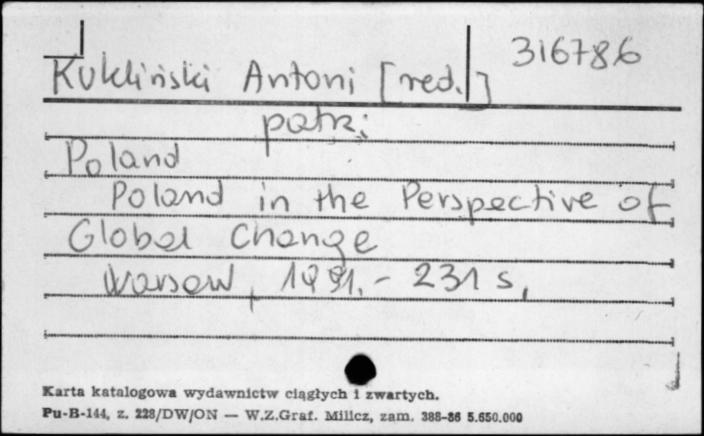 316786
Kukliński Antoni [red.]
patrz:
Poland
Poland in the Perspective of
Global Change
Warsaw, 1991.- 231 s,
Karta katalogowa wydawnictw ciągłych i zwartych.
Pu-B-144, z. 228/DW/ON — W.Z.Graf. Milicz, zam. 388-86 5.650.000